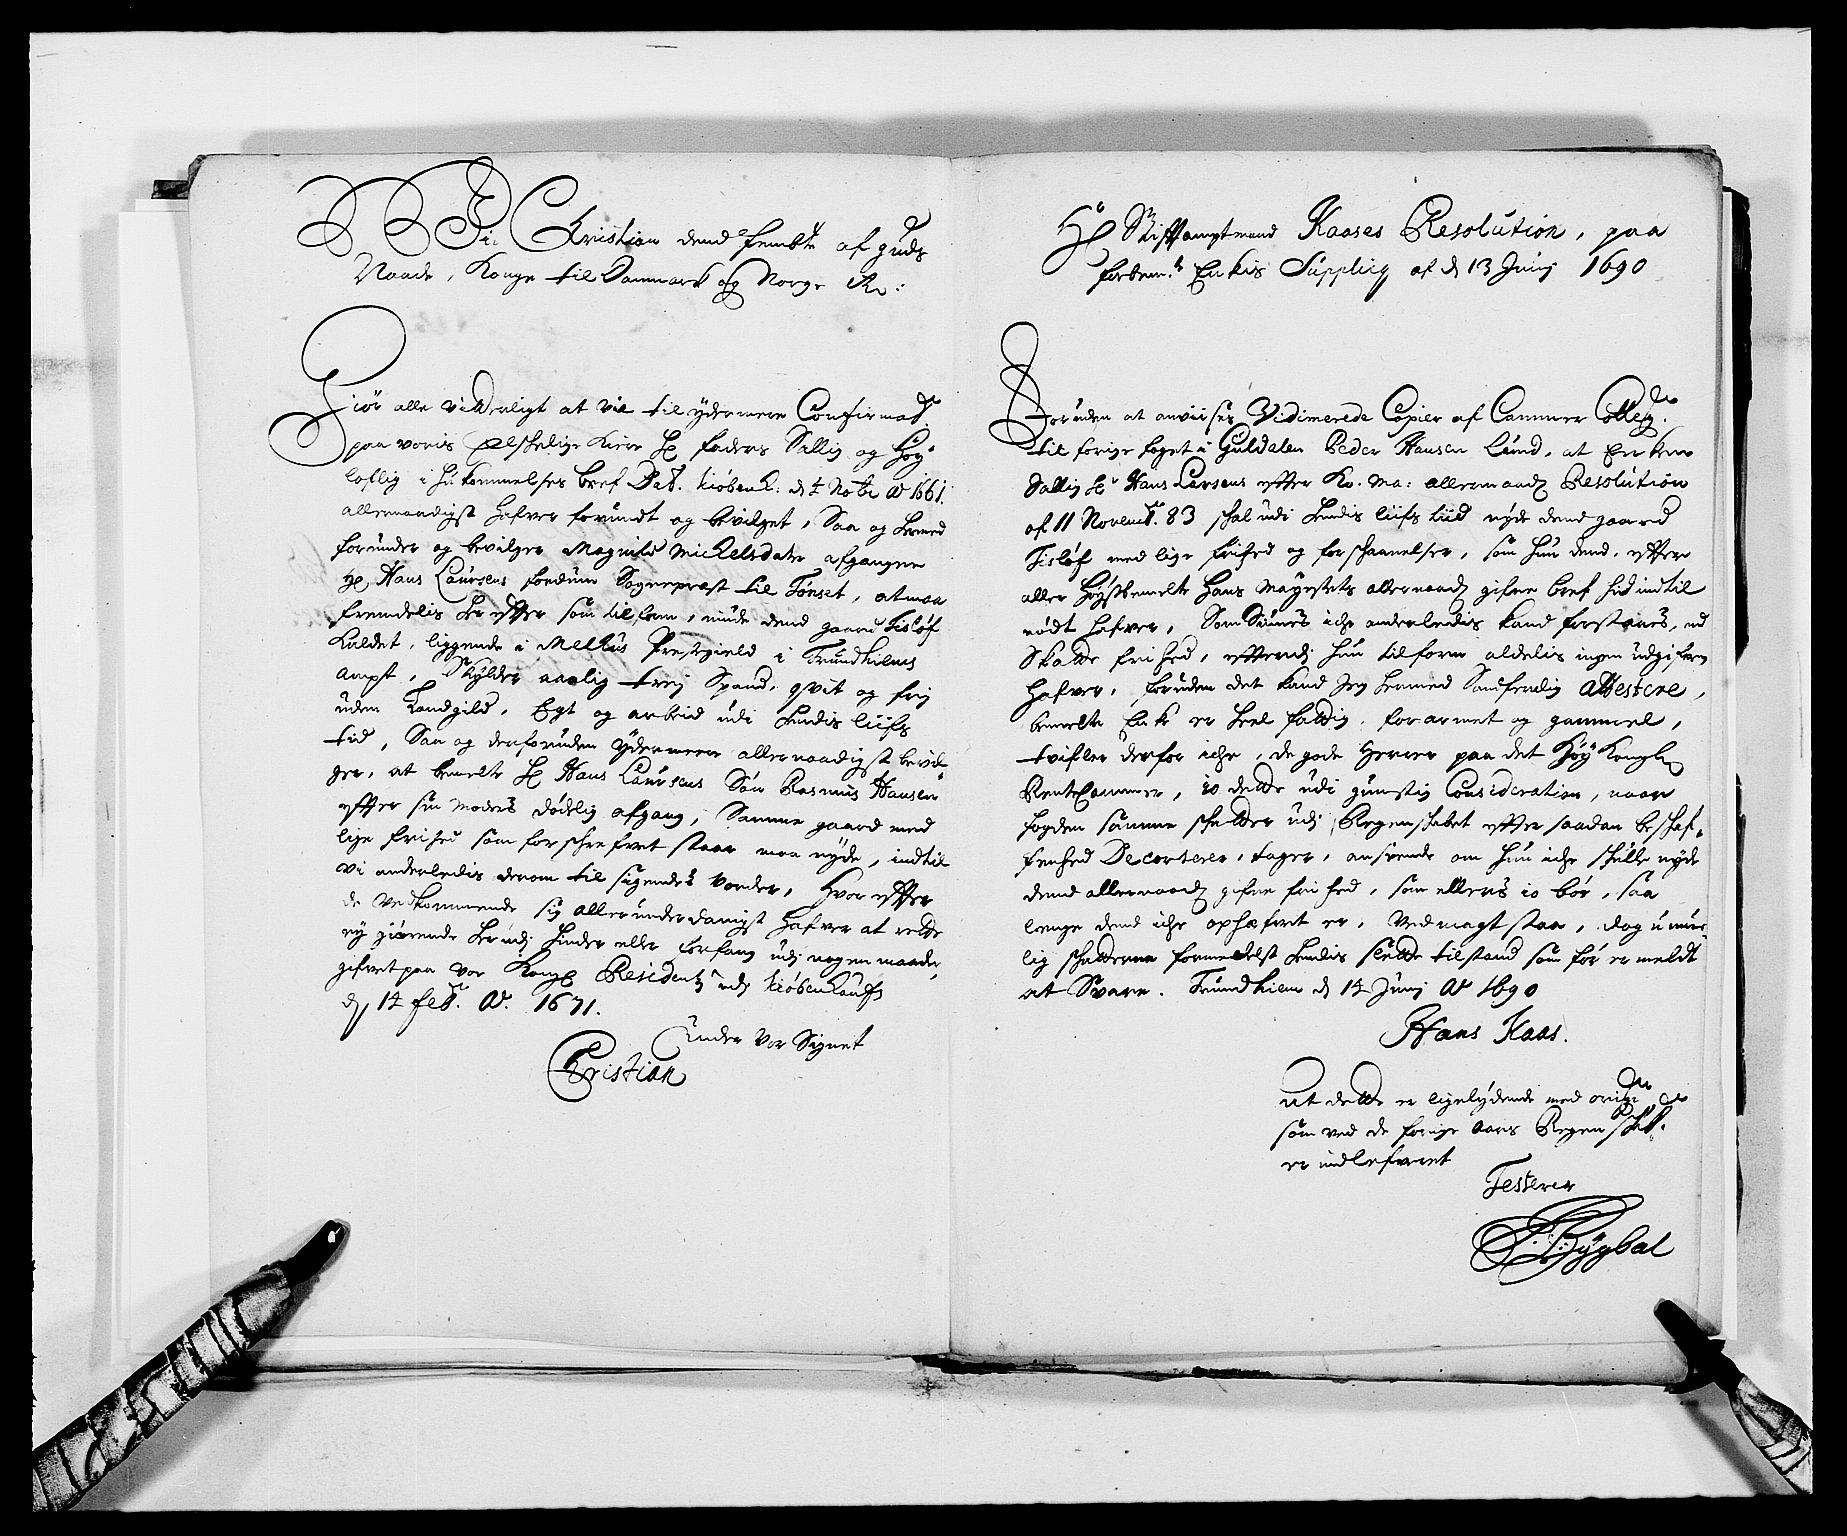 Wii Christian dend femte af guds
Naade, Konge til Danmark og Norge &c:
Giör alle vitterligt at vii til ydermere Confirmat:
paa voris Elskelige Kiere H: faders Sallig og Høy-
loflig i hukommelses bref Dat. Kiøbenh: d 4 Nobr Ao 1661.
allernaadigst hafver forundt og bevilget, Saa og hermed
forunder og bevilger Magnild Michelsdater afgangne
Hr Hans Laursens fordum Sognepræst til Tønset, at maa
fremdelis her effter som tilforn, niude dend gaard Tisløf
kaldet, liggende i Melhus Prestegield i Trundhiems
Ampt, Skylder aarlig trej Spand, qvit og frij
uden Landgild, Egt og arbeid udi hendis liifs
tid, Saa og derforuden ydermeere allernaadigst bevil-
ger, at bemelte Hr Hans Laursens Søn Rasmus Hansen
effter sin moders dødelig afgang, Samme gaard med
lige frihed som forschrefvet staar maa nyde, indtil
vi anderledis derom til sigendes vorder, Hvor effter
de vedkommende sig allerunderdanigst hafver at rette
ey giørende herudj hinder eller forfang udj nogen maader,
gifvet paa vor Kongl: Residentz udj Kiøbenhaufn
d 14 feb. Ao. 1671.
Under vor Signet
Christian
Hr Stifftamptmand Kaases Resolution, paa
forbem.te Enkis Supplicq af d 13 Junij 1690
Foruden at anviises Vidimerede Copier af Cammer Colleg:
til forige foget i Guldalen Peder Hansen Lund, at Enken
Sallig Hr Hans Larsens effter Ko. Ma: allernaad Resolution
af 11 Novemb. 83 schal udi hendis liifs tiid nyde dend gaard
Tisløf med lige frihed og forschaanelser, som hun dend, effter
aller høystbemelte hans Mayestets allernaad gifne bref hid indtil
nødt hafver, Som Siunes iche anderledis kand forstaaes, end
Skatte frihed, effterdj hun tilforn aldelis ingen udgifven
hafver, foruden det kand Jeg hermed Sandferdig Attestere,
bemelte Enke er heel fattig, forarmet og gammel,
tvifler derfor iche, de gode Herrer paa det Høy Kongl
Rente Cammer, jo dette udi gunstig Consideration, naar
fogden samme schatter udj Regenschabet effter saadan beschaf-
fenhed Decorterer, tager, anseende om hun iche schulle nyde
dend allernaad gifne frihed, som ellers jo bør, saa
lenge dend iche ophæfvet er, Ved magt staa, dog umue-
lig schatterne formedelst hendis slette tilstand som før er meldt
at Svare. Trundhiem d 14 Junij Ao 1690
Hans Kaas.
At dette er ligelydende med orig:
som ved de forige Aars Regensch:
er indlefveret
Testerer
Bygbal